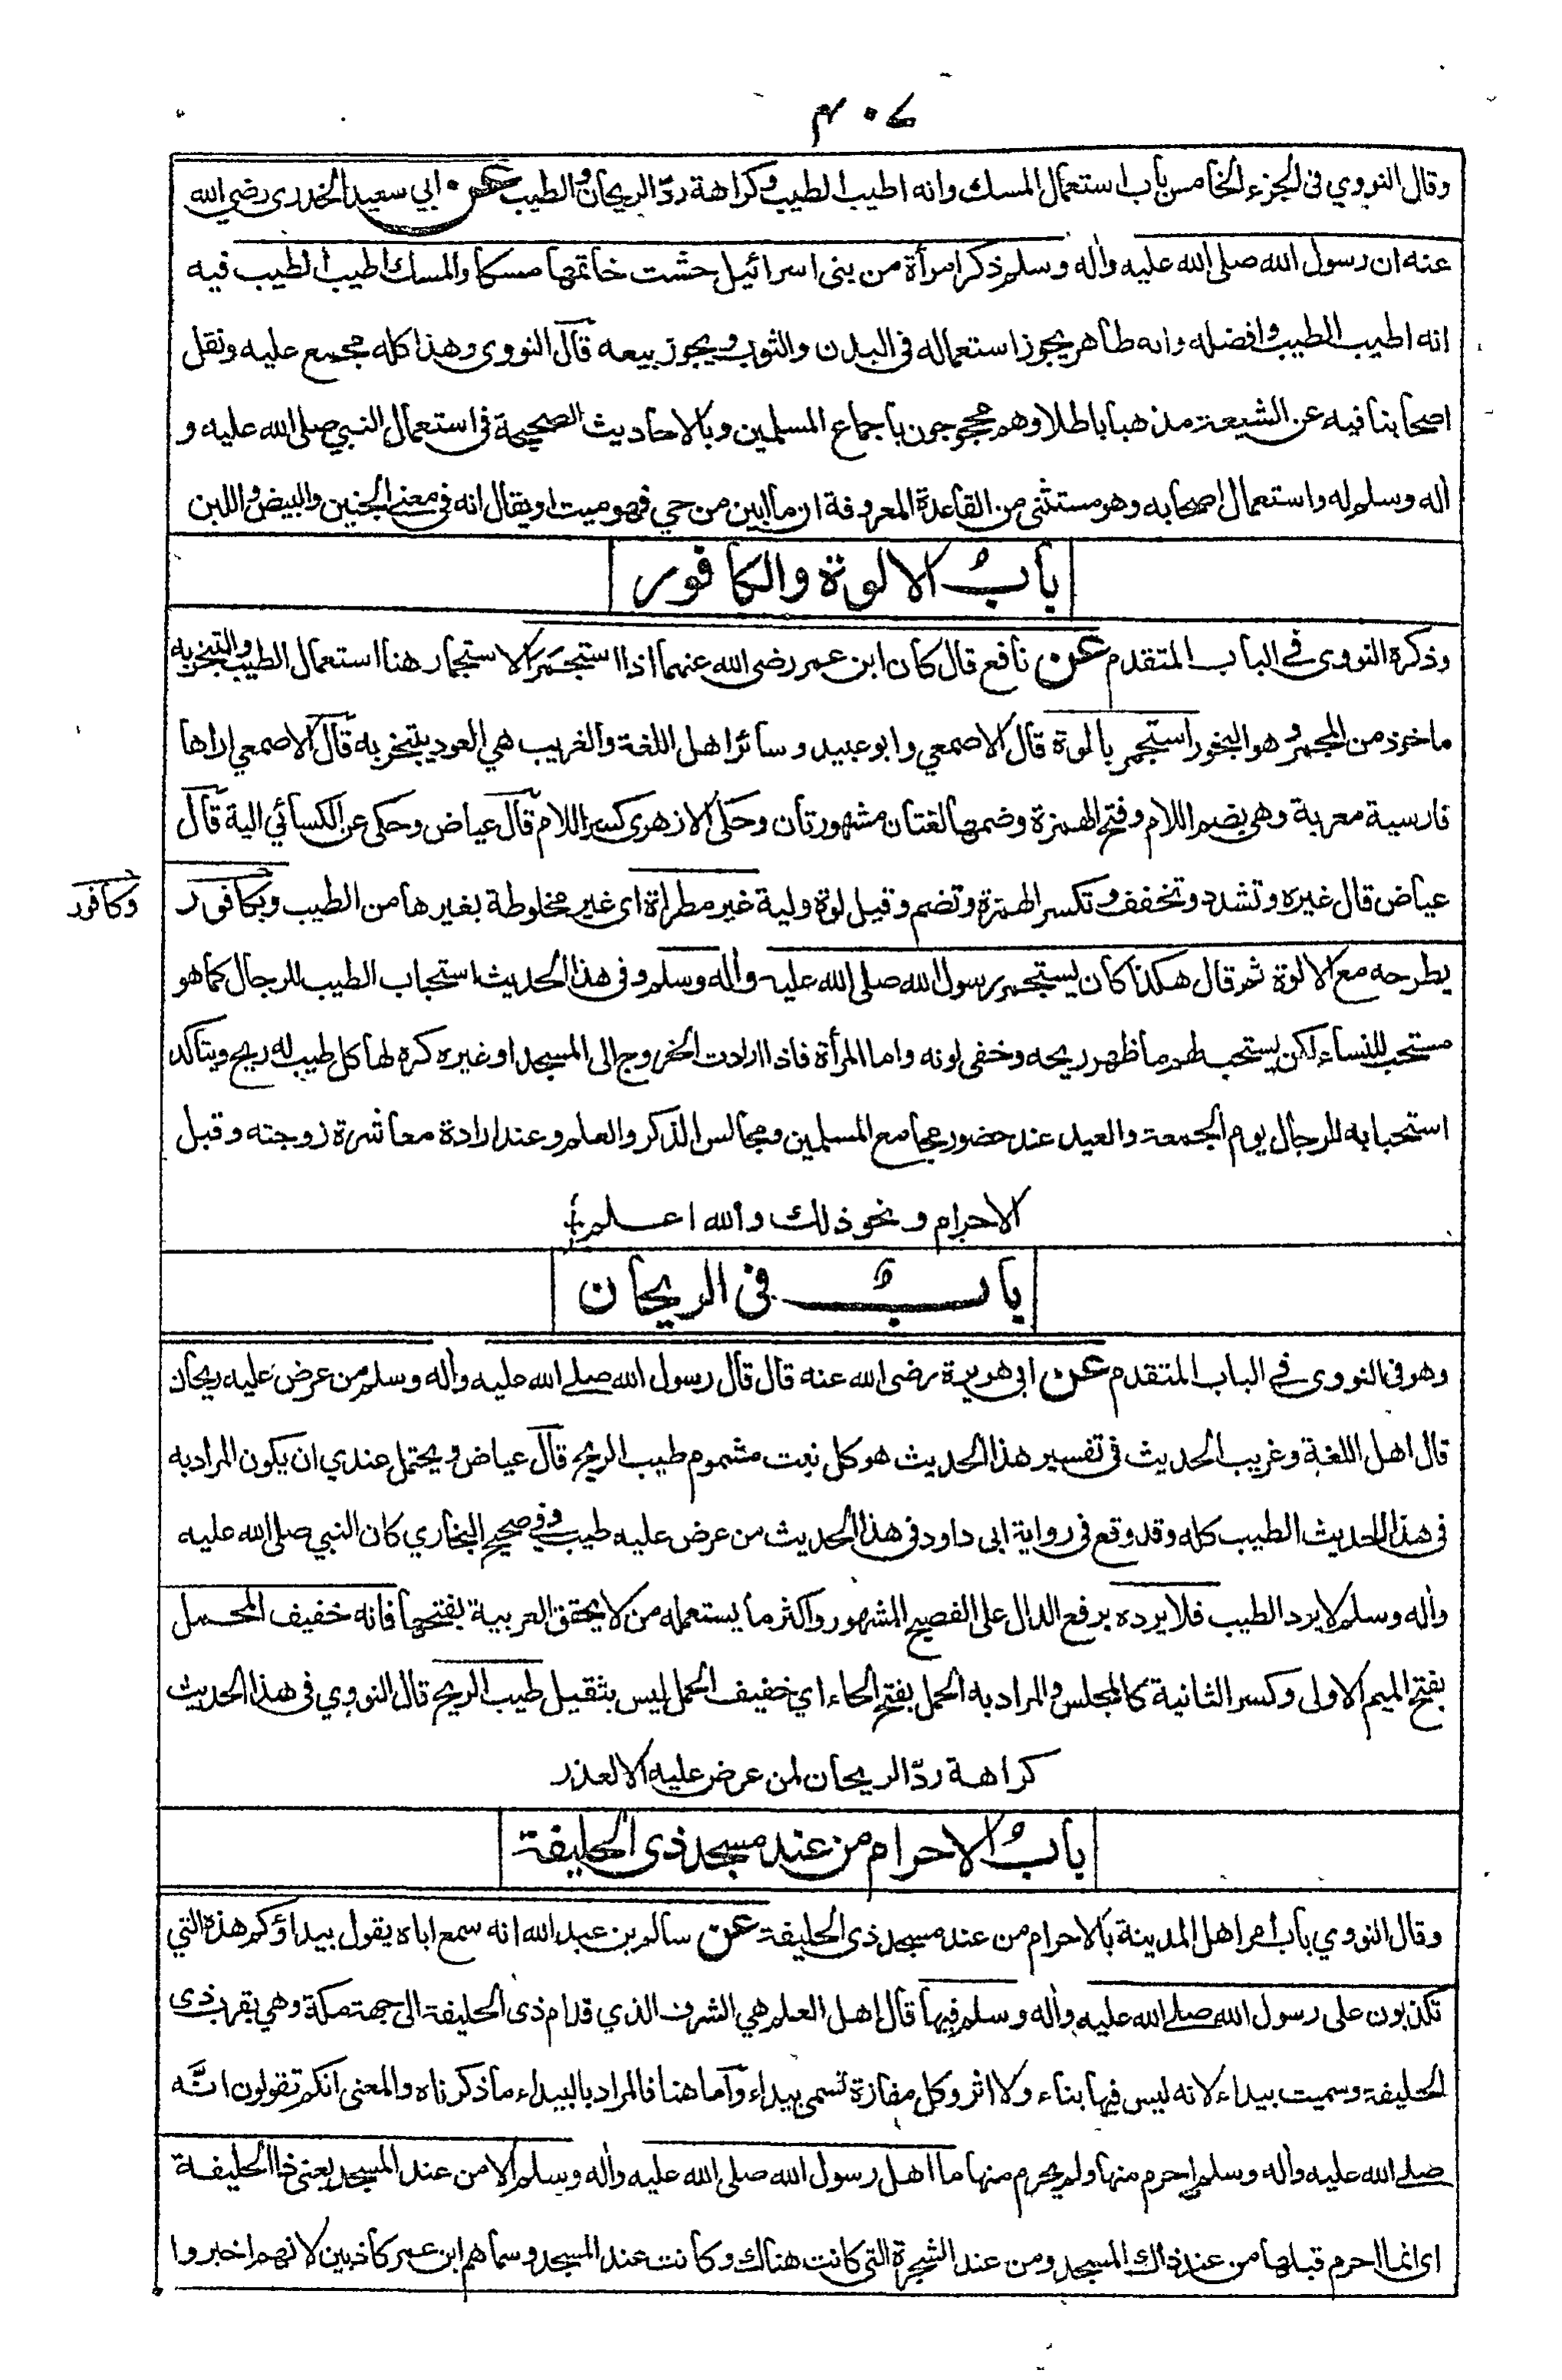 ٤٠٧
وقال النووي فى الجزء الخامس باب استعمال المسك وانه اطيب الطيب وكراهة ردّ الريحان والطيب عن ابي سعيد الخدرى رضي الله
عنه ان رسول الله صلى الله عليه واٰله وسلم ذكر امرأة من بنى اسرائيل حشت خاتمها مسكا والمسك اطيب الطيب فيه
انه اطيب الطيب وافضله وانه طاهر يجوز استعماله فى البدن والثوب ويجوز بيعه قال النووى وهذا كله مجمع عليه ونقل
اصحابنا فيه عن الشيعة مذهبا باطلا وهم محجوجون باجماع المسلمين وبالاحاديث الصحيحة فى استعمال النبي صلى الله عليه و
اٰله وسلم له واستعمال اصحابه وهو مستثنى من القاعدة المعروفة ان ما ابين من حي فهو ميت او يقال انه فى معنى الجنين والبيض واللبن
بابُ الالوة والكافور
وذكره النووى في الباب المتقدم عن نافع قال كان ابن عمر رضى الله عنهما اذا استجمَر الاستجمار هنا استعمال الطيب والتبخر به
ماخوذ من المجمر وهو البخور استجمر بالوة قال الاصمعي وابو عبيد وسائر اهل اللغة والغريب هي العود يتبخر به قال الاصمعي اراها
فارسية معربة وهى بضم اللام وفتح الهمزة وضمها لغتان مشهورتان وحكى الازهرى كسر اللام قال عياض وحكى عن الكسائي الية قال
عياض قال غيره وتشدد وتخفف وتكسر الهمزة وتضم وقيل لوة ولية غير مطراة اى غير مخلوطة بغيرها من الطيب وبكافور
وكافور
يطرحه مع الالوة ثم قال هكذا كان يستجمر رسول الله صلى الله عليه واٰله وسلم وفى هذا الحديث استحباب الطيب للرجال كما هو
مستحب للنساء لكن يستحب لهم ما ظهر ريحه وخفى لونه واما المرأة فاذا ارادت الخروج الى المسجد او غيره كره لها كل طيب له ريح ويتأكد
استحبابه للرجال يوم الجمعة والعيد عند حضور مجامع المسلمين ومجالس الذكر والعلم وعند ارادة معاشرة زوجته وقبل
الاحرام ونحو ذلك والله اعلم
بابٌ فى الريحان
وهو فى النووى في الباب المتقدم عن ابى هريرة رضى الله عنه قال قال رسول الله صلے الله عليه واٰله وسلم من عرض عليه ريحان
قال اهل اللغة وغريب الحديث فى تفسير هذا الحديث هو كل نبت مشموم طيب الريح قال عياض ويحتمل عندي ان يكون المراد به
فى هذا الحديث الطيب كله وقد وقع فى رواية ابى داود فى هذا الحديث من عرض عليه طيب وفي صحيح البخاري كان النبي صلى الله عليه
واٰله وسلم لا يرد الطيب فلا يرده برفع الدال على الفصيح المشهور واكثر ما يستعمله من لا يحقق العربية بفتحها فانه خفيف المحمل
بفتح الميم الاولى وكسر الثانية كالمجلس والمراد به الحمل بفتح الحاء اي خفيف الحمل ليس بثقيل طيب الريح قال النووي فى هذا الحديث
كراهة ردّ الريحان لمن عرض عليه الا لعذر
بابُ الاحرام من عند مسجد ذى الحليفة
وقال النووي باب امر اهل المدينة بالاحرام من عند مسجد ذى الحليفة عن سالم بن عبد الله انه سمع اباه يقول بيداؤكم هذه التي
تكذبون على رسول الله صلے الله عليه واٰله وسلم فيها قال اهل العلم هي الشرف الذي قدام ذى الحليفة الى جهة مكة وهي بقرب ذى
الحليفة وسميت بيداء لانه ليس فيها بناء ولا اثر وكل مفازة تسمى بيداء وآما هنا فالمراد بالبيداء ما ذكرناه والمعنى انكم تقولون انّه
صلے الله عليه واٰله وسلم احرم منها ولم يحرم منها ما اهل رسول الله صلى الله عليه واٰله وسلم الا من عند المسجد يعنى ذا الحليفة
اى انما احرم قبلها من عند ذاك المسجد ومن عند الشجرة التى كانت هناك وكانت عند المسجد وسماهم ابن عمر كاذبين لانهم اخبروا